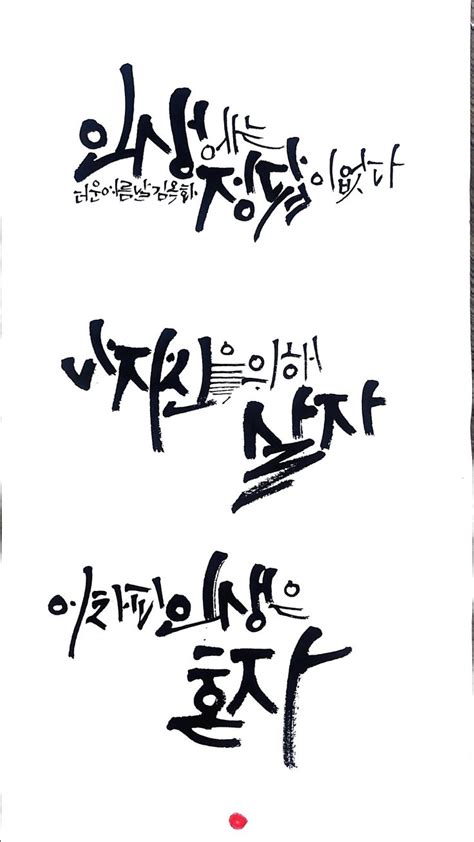 인생에는
정답이 없다
더운여름날 김옥화
나 자신을 위해
살자
어차피 인생은
혼자